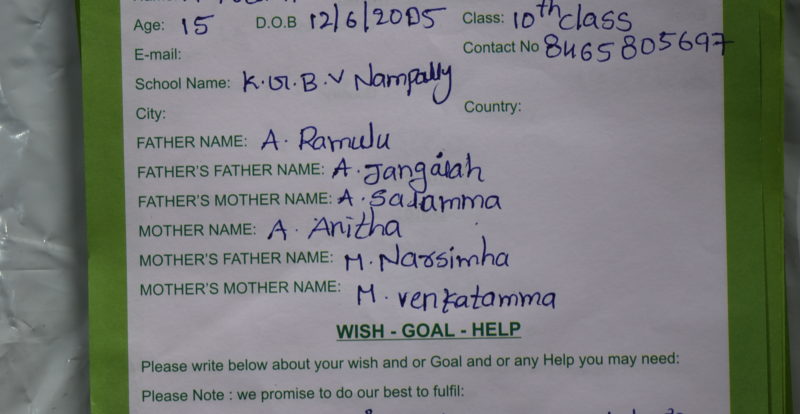 Age: 15 D.O.B 12/6/2005 Class: 10th class
E-mail: Contact No 8465805697
School Name: K.G.B.V Nampally
City: Country:
FATHER NAME: A. Ramulu
FATHER'S FATHER NAME: A. Jangaiah
FATHER'S MOTHER NAME: A. Salamma
MOTHER NAME: A. Anitha
MOTHER'S FATHER NAME: M. Narsimha
MOTHER'S MOTHER NAME: M. venkatamma
WISH - GOAL - HELP
Please write below about your wish and or Goal and or any Help you may need:
Please Note : we promise to do our best to fulfil: